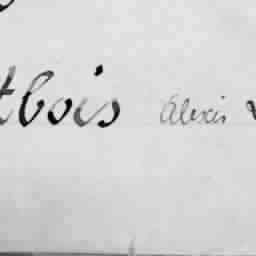 tbois Alexis